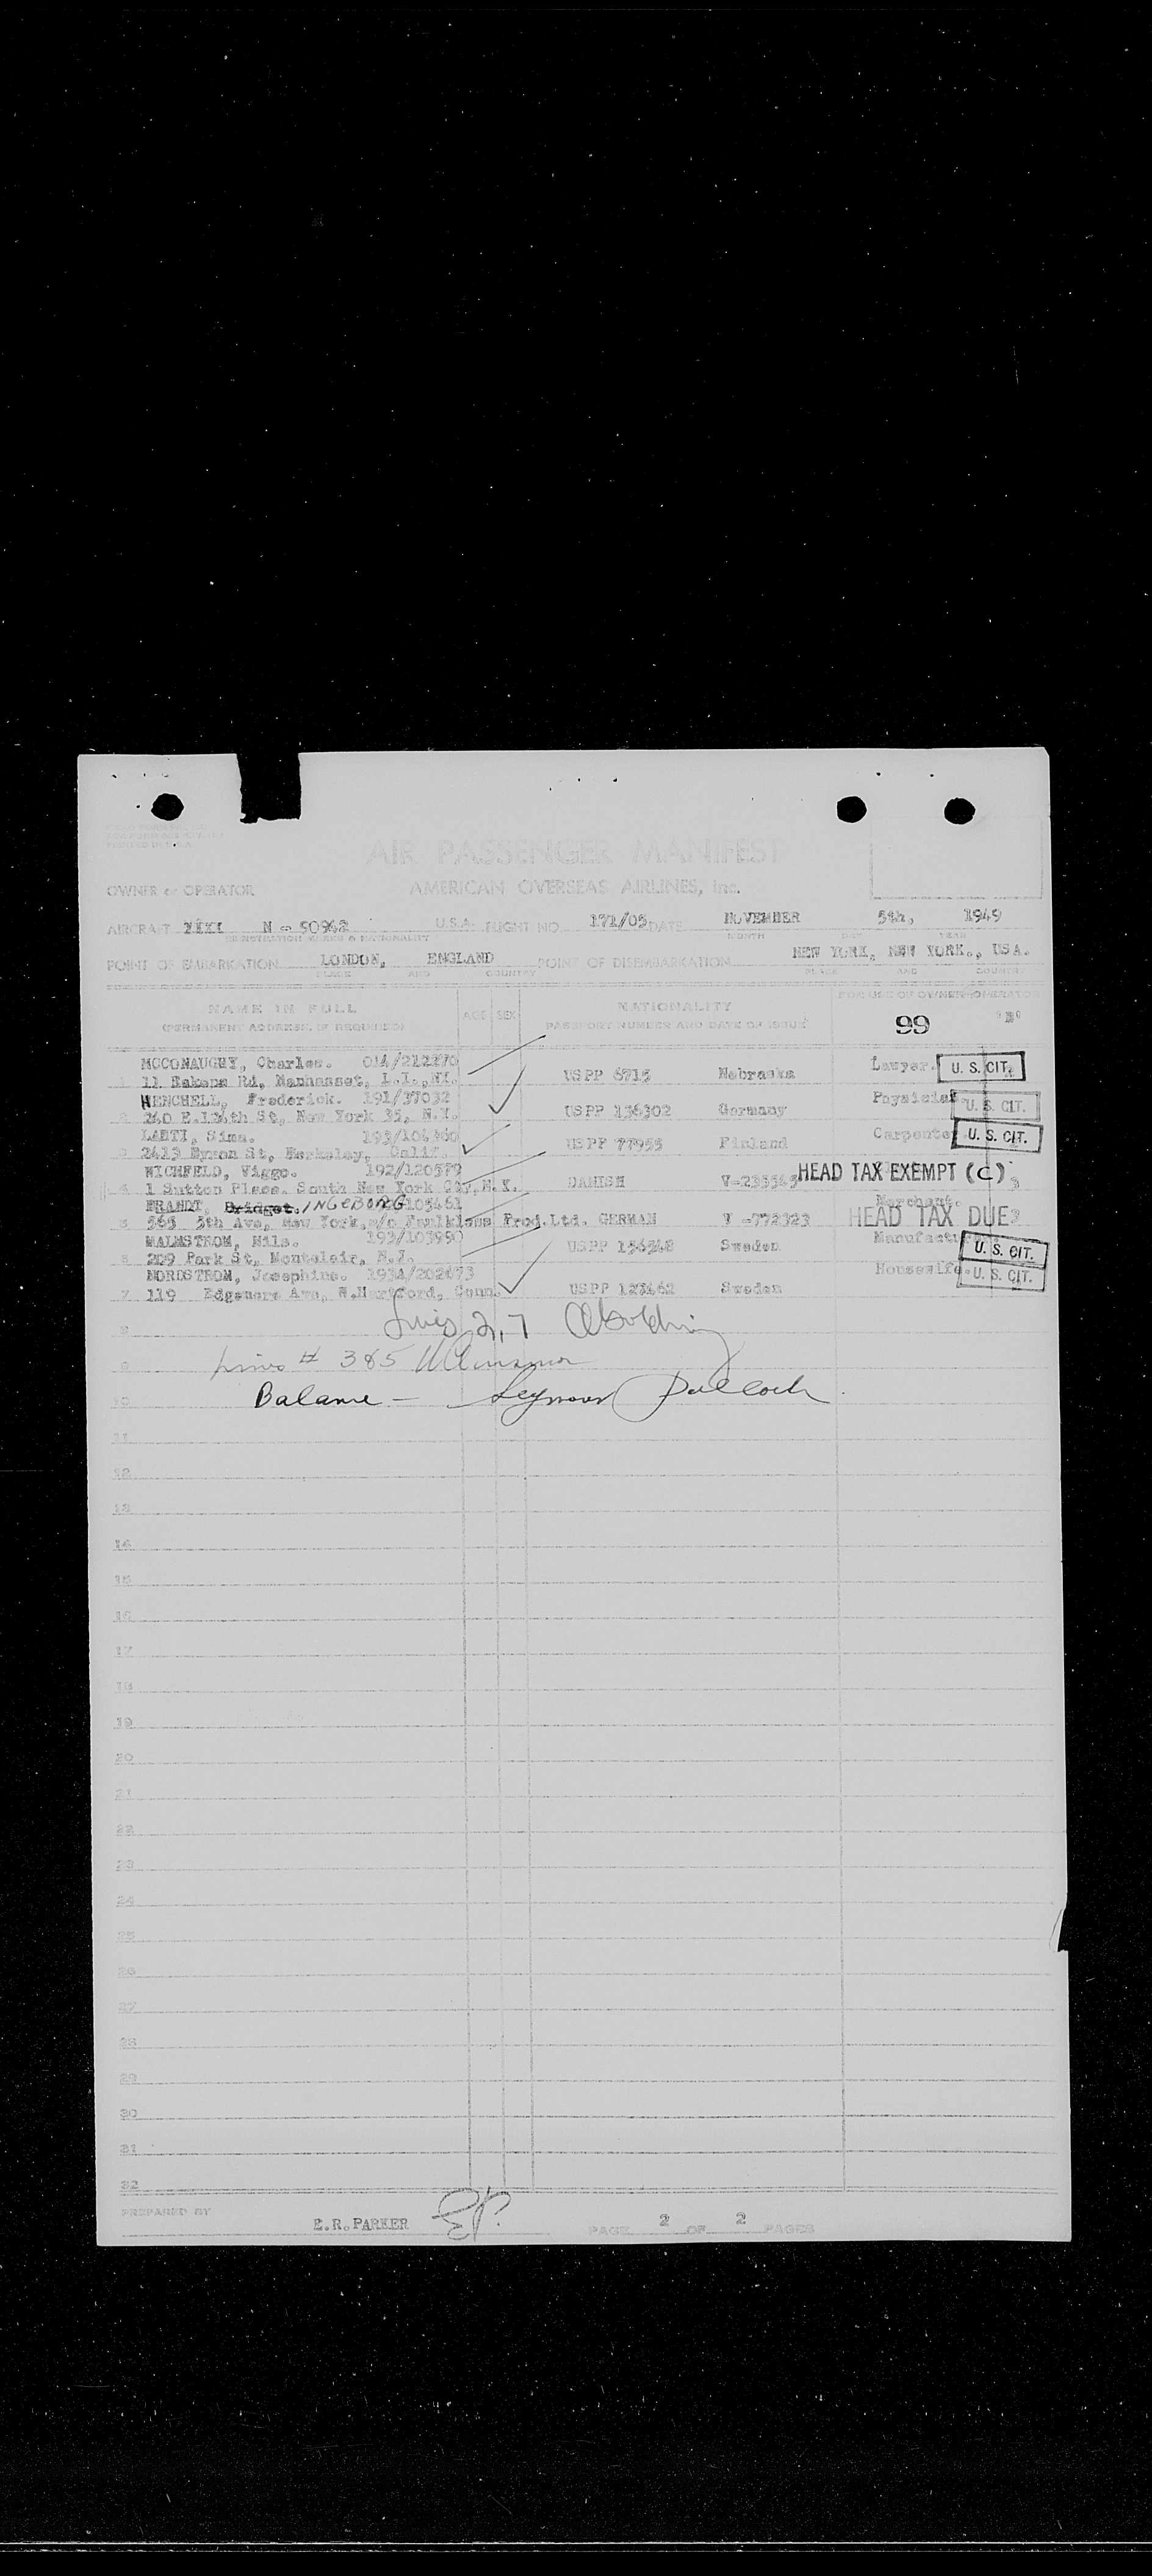 AIR PASSENGER MANIFEST
OWNER or OPERATOR AMERICAN OVERSEAS AIRLINES, Inc.
AIRCRAFT N - 90942 U.S.A. FLIGHT NO. 171/05 DATE NOVEMBER 5th, 1949
REGISTRATION MARKS & NATIONALITY MONTH DAY YEAR
POINT OF EMBARKATION LONDON, ENGLAND POINT OF DISEMBARKATION NEW YORK, NEW YORK., USA.
PLACE AND COUNTRY PLACE AND COUNTRY
NAME IN FULL AGE SEX NATIONALITY FOR USE OF OWNER-OPERATOR
(PERMANENT ADDRESS, IF REQUIRED) PASSPORT NUMBER AND DATE OF ISSUE 99
MCCONAUGHY, Charles. 014/212270 Lawyer. U. S. CIT.
1 11 Rd, Manhasset, L.I.,NY. USPP 6715 Nebraska
HENCHELL, Frederick. 191/37032 Physician U. S. CIT.
2 240 E.124th St, New York 35, N.Y. USPP 136302 Germany
LAETI, Sima. Carpenter U. S. CIT.
3 2413 Byron St, Berkeley, Calif. USPP 77955 Finland
WICHFELD, Viggo. 192/120579 HEAD TAX EXEMPT (C)
4 1 Sutton Place. South New York Cty,N.Y. DANISH
BRANDT, Bridget. INGEBORG 105461 Merchant.
5 565 5th Ave, New York,c/o Prod.Ltd. GERMAN V -772323 HEAD TAX DUE
MALMSTROM, Nils. 193/103990 U. S. CIT.
6 209 Park St, Montclair, N.J. USPP 156348 Sweden
NORDSTROM, Josephine. 193A/202673 Housewife. U. S. CIT.
7 119 Ave, W.Hartford, Conn. USPP 123462 Sweden
8 2,7
9 # 385
10 Balance - Seymour Pollock
11
12
13
14
15
16
17
18
19
20
21
22
23
24
25
26
27
28
29
30
31
32
PREPARED BY E.R.PARKER PAGE 2 OF 2 PAGES